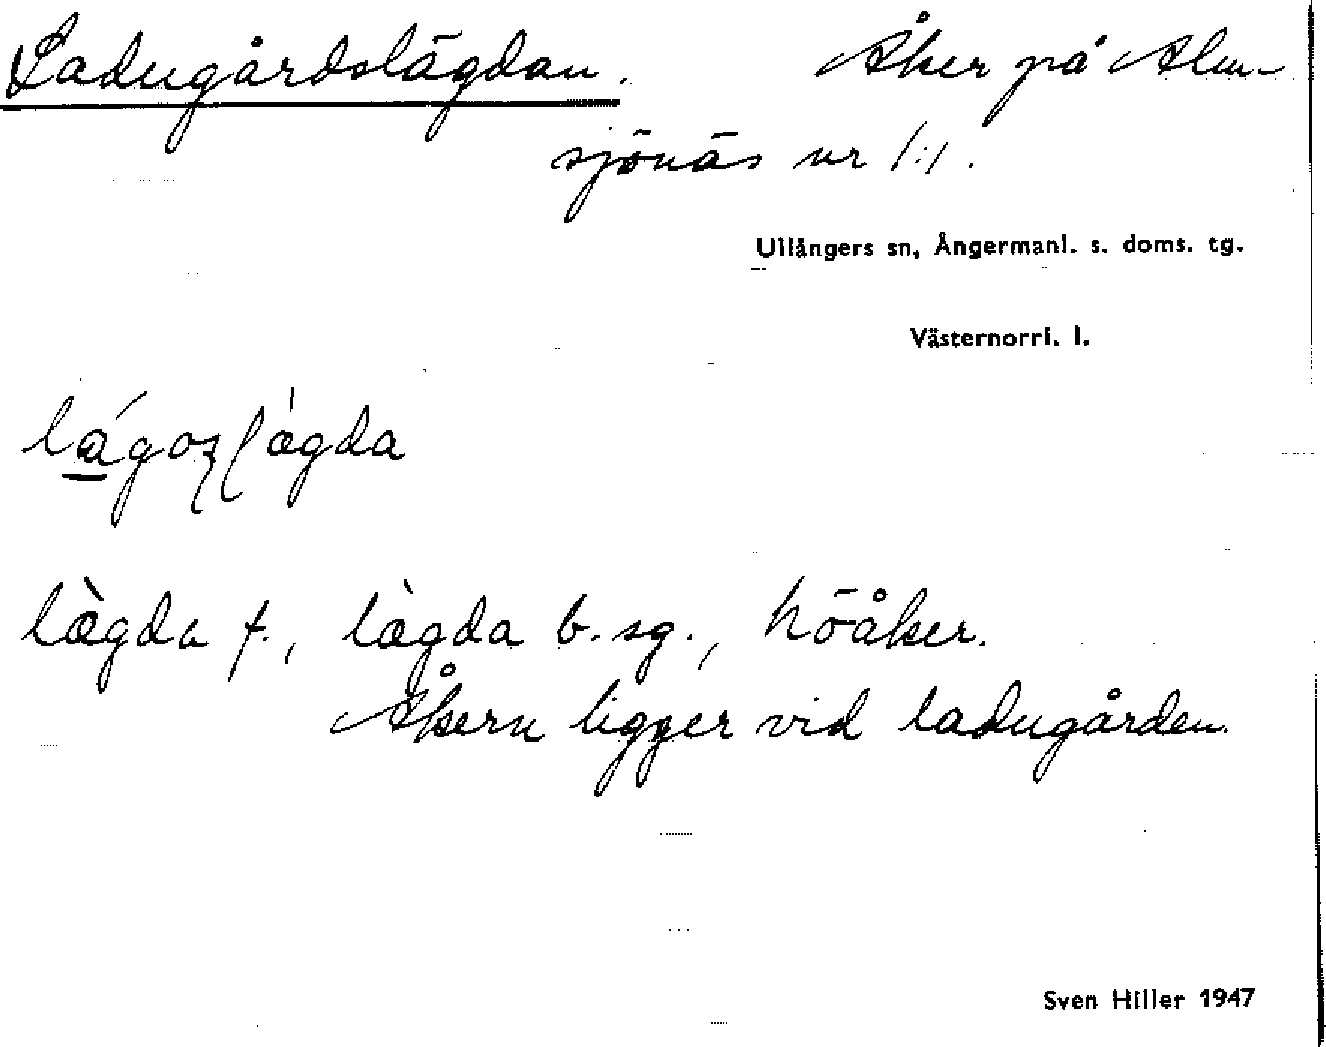 Ladugårdslägdan. Åker på Alm-
sjönäs nr 1:1.
Ullångers sn, Ångermanl. s. doms. tg.
Västernorrl. l.
lägda f., lägda b. sg., höåker.
Åkern ligger vid ladugården.
Sven Hiller 1947